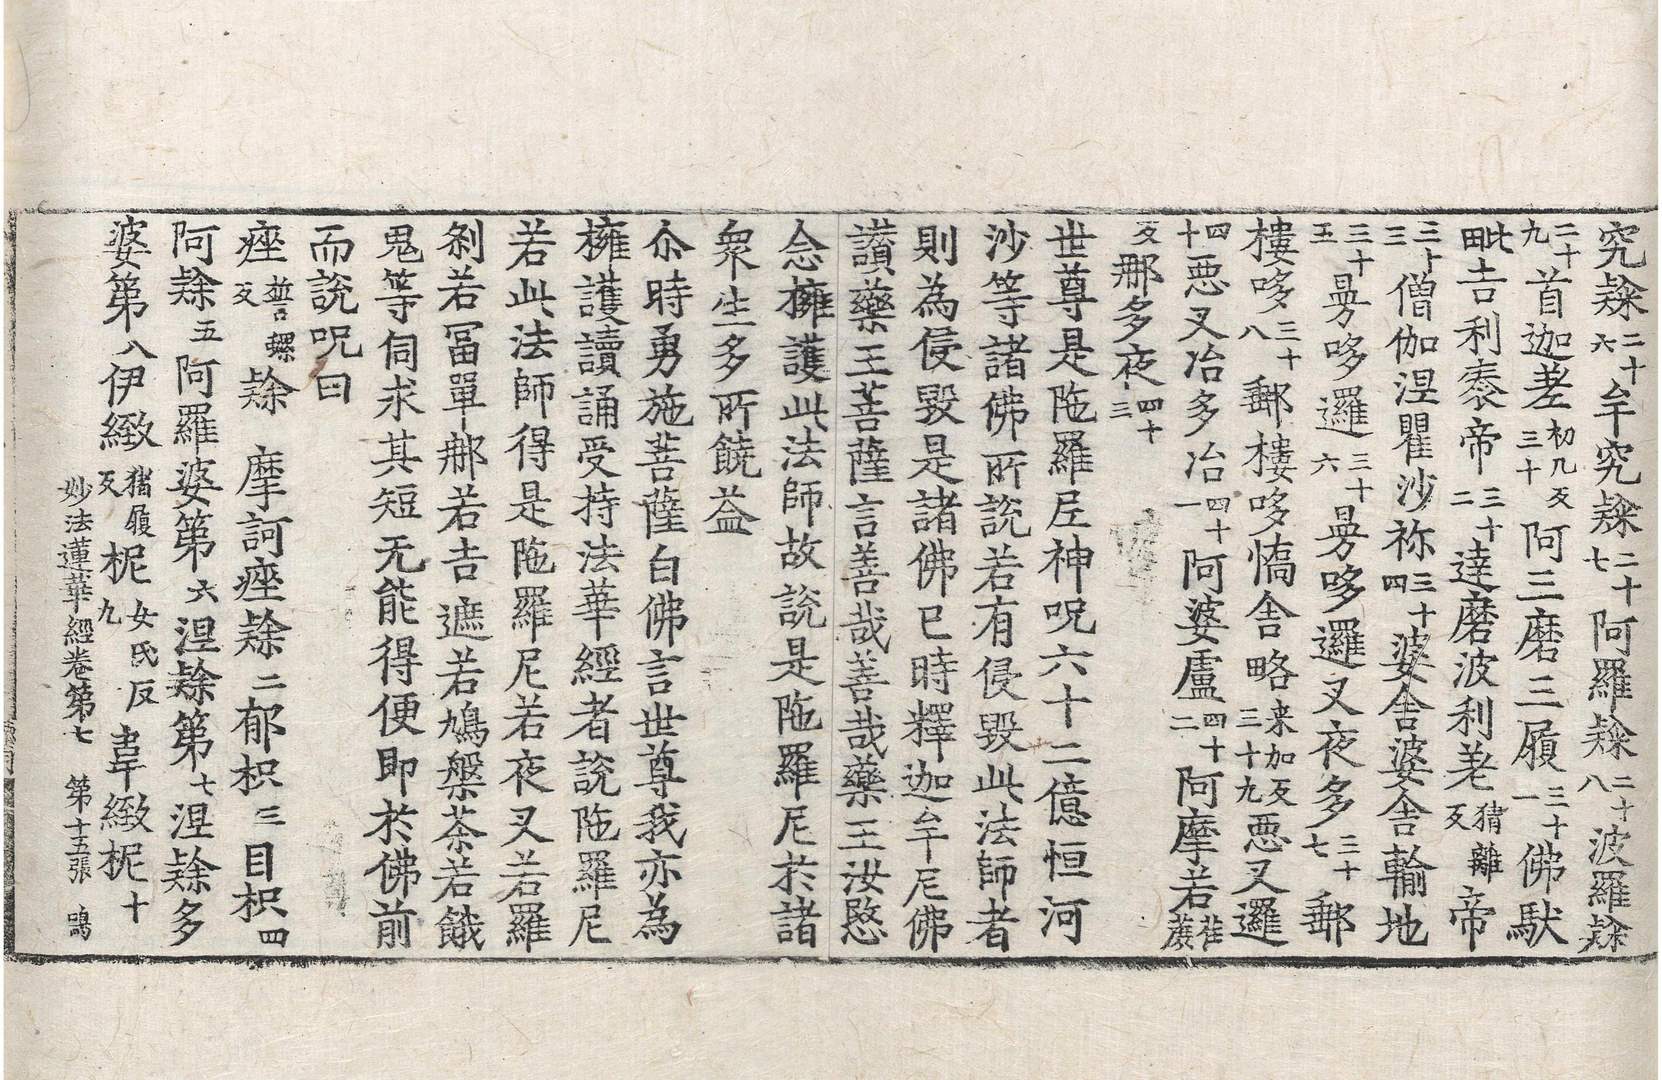 究隸二十六牟究隸二十七阿羅隸二十八波羅隸
二十九首迦差初几反三十阿三磨三履三十一佛馱
毗吉利袠帝三十二達磨波利差猜離反帝
三十三僧伽涅瞿沙祢三十四婆舍婆舍輸地
三十五曼哆邏三十六曼哆邏叉夜多三十七郵
樓哆三十八郵樓哆憍舍略来加反三十九惡叉邏
四十惡叉冶多冶四十一阿婆盧四十二阿摩若荏蔗
反那多夜四十三
世尊是陁羅尼神呪六十二億恒河
沙等諸佛所說若有侵毀此法師者
則為侵毀是諸佛已時釋迦牟尼佛
讃藥王菩薩言善哉善哉藥王汝愍
念擁護此法師故說是陁羅尼於諸
衆生多所饒益
尒時勇施菩薩白佛言世尊我亦為
擁護讀誦受持法華經者說陁羅尼
若此法師得是陁羅尼若夜叉若羅
刹若冨單那若吉遮若鳩槃茶若餓
鬼等伺求其短无能得便即於佛前
而說呪曰
痤誓螺反隸 摩訶痤隸二郁枳三目枳四
阿隸五阿羅婆第六涅隸第七涅隸多
婆第八伊緻猪履反柅女氏反九韋緻柅十
妙法蓮華經卷第七 第十五張 鳴